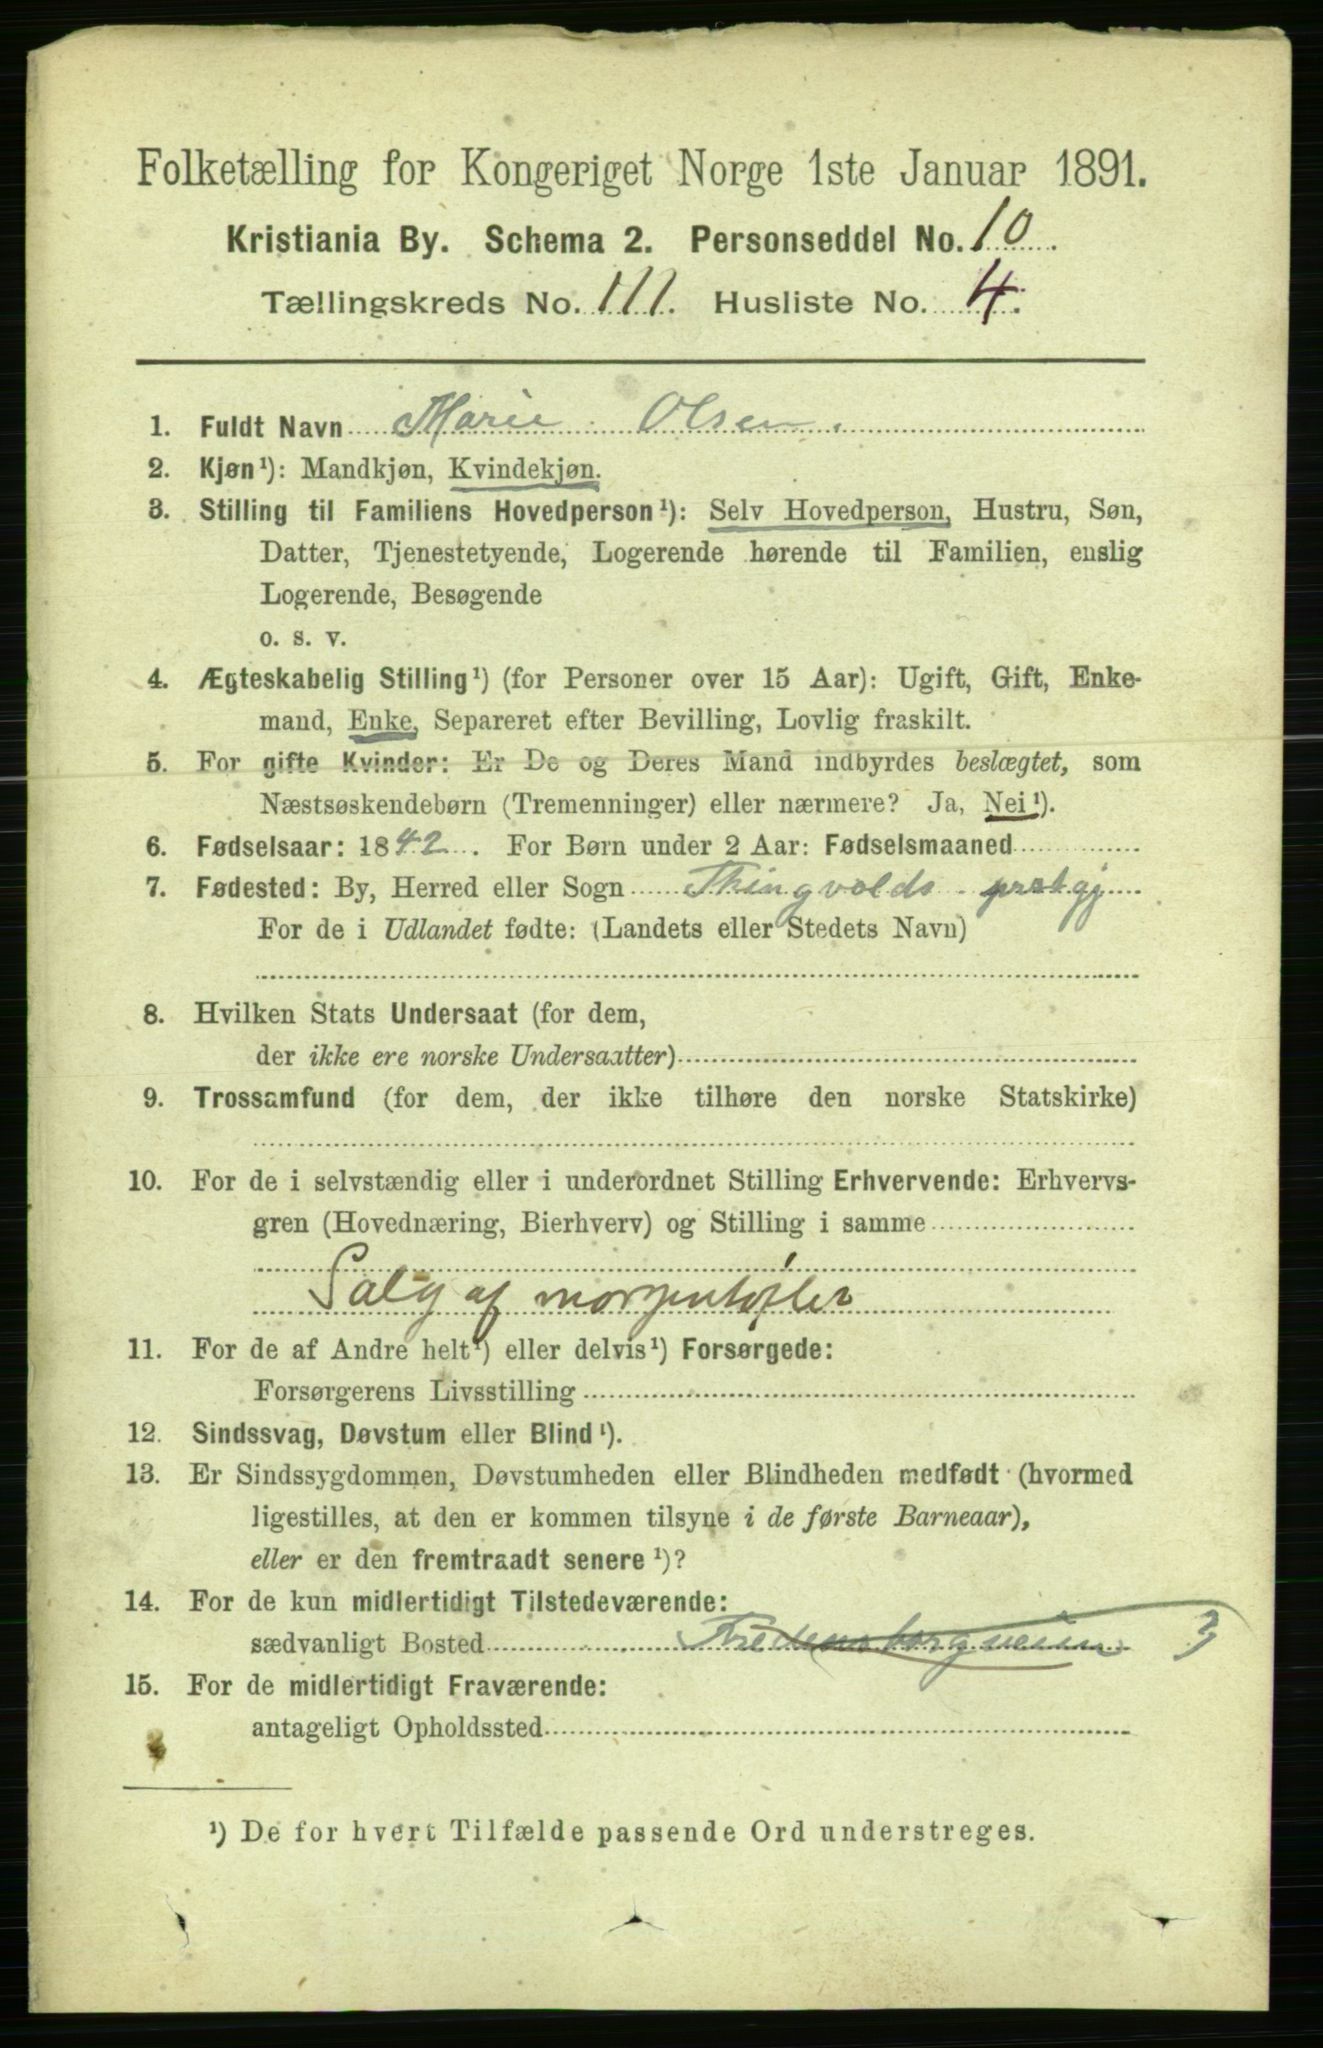 Folketælling for Kongeriget Norge 1ste Januar 1891.
Kristiania By. Schema 2. Personseddel No. 10.
Tællingskreds No. 111. Husliste No. 4.
1. Fuldt Navn Marie Olsen.
2. Kjøn¹): Mandkjøn, Kvindekjøn.
3. Stilling til Familiens Hovedperson¹): Selv Hovedperson, Hustru, Søn,
Datter, Tjenestetyende, Logerende hørende til Familien, enslig
Logerende, Besøgende
o. s. v.
4. Ægteskabelig Stilling¹) (for Personer over 15 Aar): Ugift, Gift, Enke-
mand, Enke, Separeret efter Bevilling, Lovlig fraskilt.
5. For gifte Kvinder: Er De og Deres Mand indbyrdes beslægtet, som
Næstsøskendebørn (Tremenninger) eller nærmere? Ja, Nei¹).
6. Fødselsaar: 1842. For Børn under 2 Aar: Fødselsmaaned
7. Fødested: By, Herred eller Sogn Thingvolds prstgj
For de i Udlandet fødte: (Landets eller Stedets Navn)
8. Hvilken Stats Undersaat (for dem,
der ikke ere norske Undersaatter)
9. Trossamfund (for dem, der ikke tilhøre den norske Statskirke)
10. For de i selvstændig eller i underordnet Stilling Erhvervende: Erhvervs-
gren (Hovednæring, Bierhverv) og Stilling i samme
Salg af morgentøfler
11. For de af Andre helt¹) eller delvis¹) Forsørgede:
Forsørgerens Livsstilling
12. Sindssvag, Døvstum eller Blind¹).
13. Er Sindssygdommen, Døvstumheden eller Blindheden medfødt (hvormed
ligestilles, at den er kommen tilsyne i de første Barneaar),
eller er den fremtraadt senere¹)?
14. For de kun midlertidigt Tilstedeværende:
sædvanligt Bosted Fredensborgveien 3
15. For de midlertidigt Fraværende:
antageligt Opholdssted
¹) De for hvert Tilfælde passende Ord understreges.